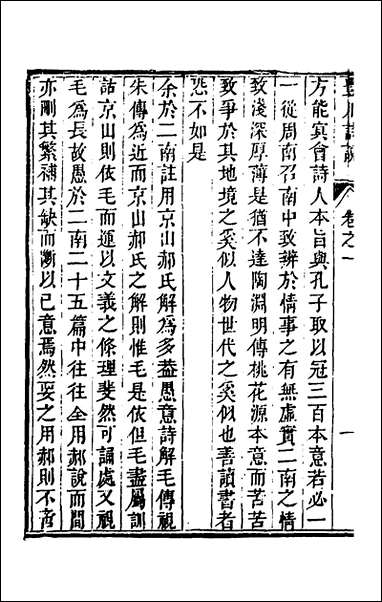 豐川詩說
卷之一
一
方能冥會詩人本旨與孔子取以冠三百本意若必一
一從周南召南中致辨於情事之有無虛實二南之情
致淺深厚薄是猶不達陶淵明傳桃花源本意而苦苦
致爭於其地境之奚似人物世代之奚似也善讀書者
恐不如是
余於二南註用京山郝氏解為多蓋愚意詩解毛傳視
朱傳為近而京山郝氏之解則惟毛是依但毛盡屬訓
詁京山則依毛而運以文義之條理斐然可誦處又視
毛為長故愚於二南二十五篇中往往全用郝說而間
亦刪其繁補其缺而斷以已意焉然要之用郝則不啻